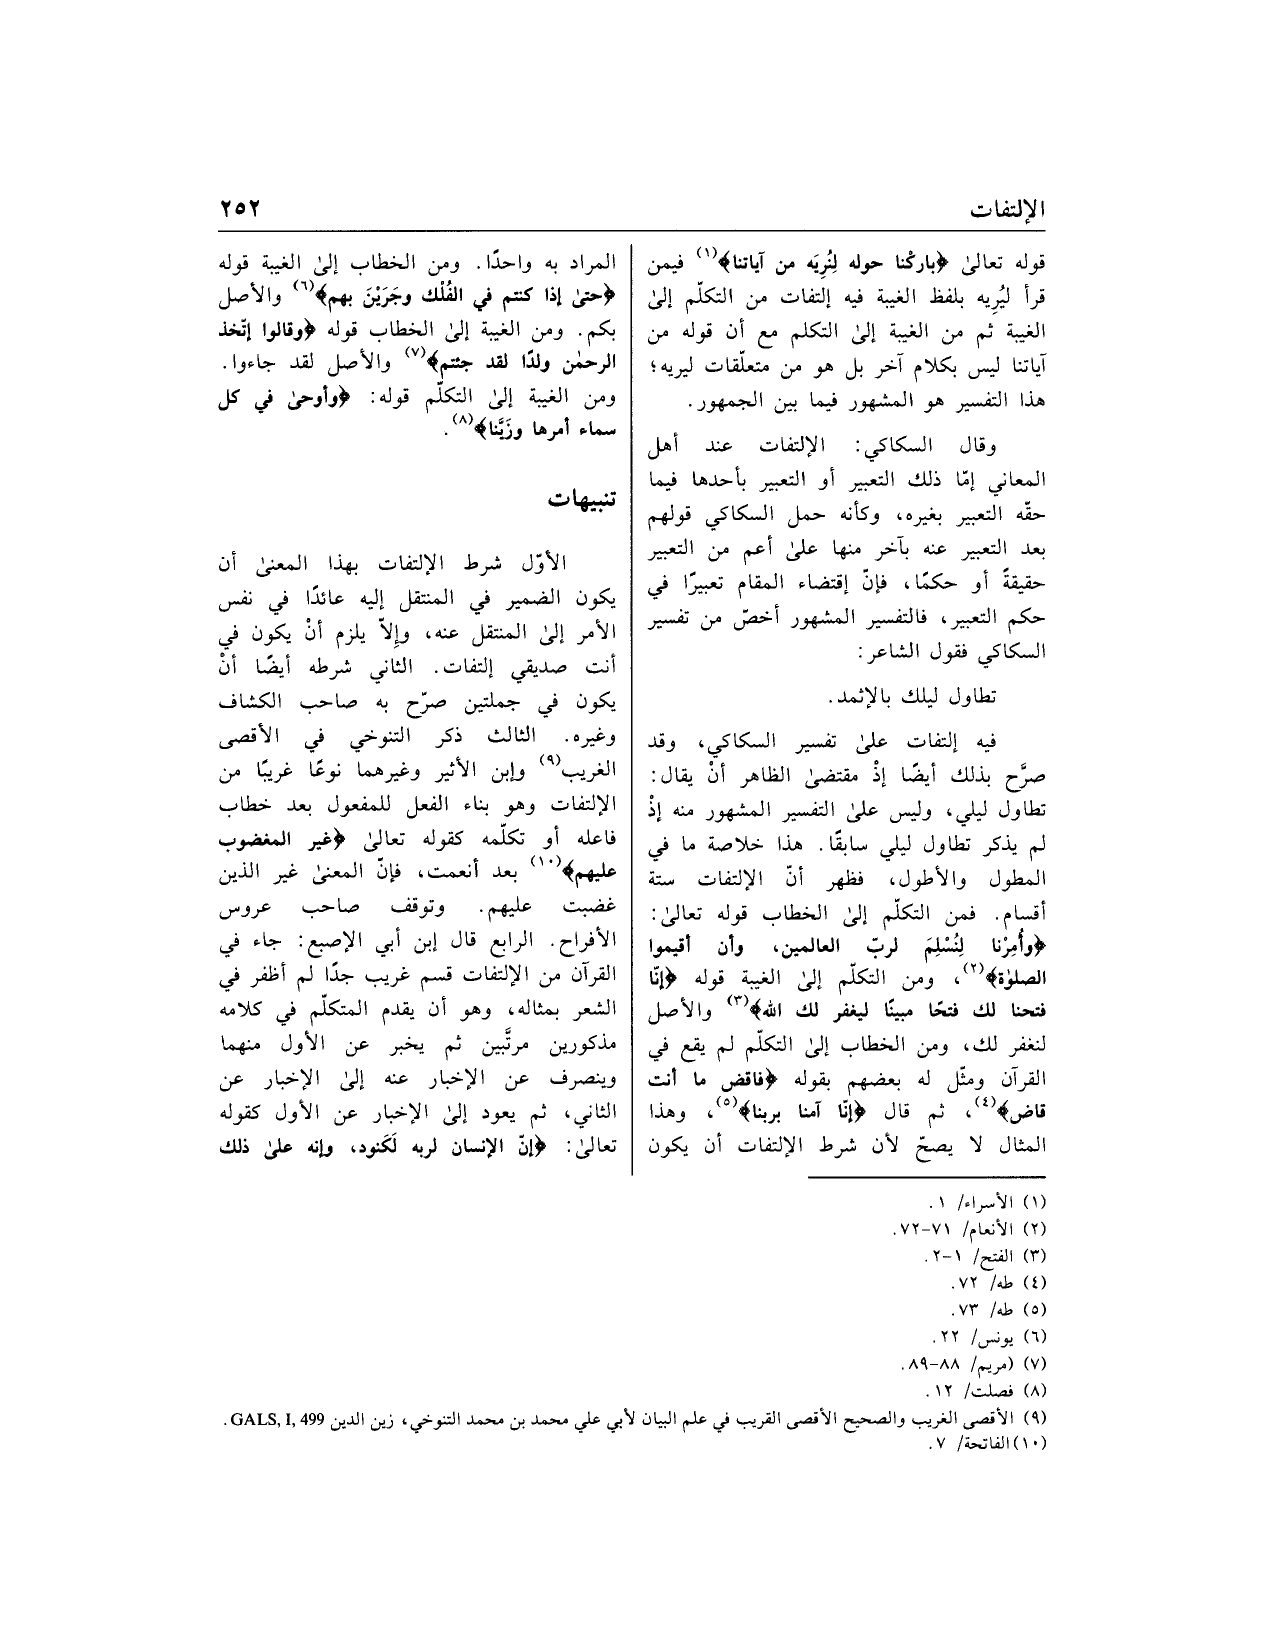 الإلتفات
٢٥٢
قوله تعالىٰ ﴿باركْنا حوله لِنُرِيَه من آياتنا﴾(١) فيمن
قرأ ليُرِيه بلفظ الغيبة فيه إلتفات من التكلّم إلىٰ
الغيبة ثم من الغيبة إلىٰ التكلم مع أن قوله من
آياتنا ليس بكلام آخر بل هو من متعلّقات ليريه؛
هذا التفسير هو المشهور فيما بين الجمهور.
وقال السكاكي: الإلتفات عند أهل
المعاني إمّا ذلك التعبير أو التعبير بأحدها فيما
حقّه التعبير بغيره، وكأنه حمل السكاكي قولهم
بعد التعبير عنه بآخر منها علىٰ أعم من التعبير
حقيقةً أو حكمًا، فإنّ إقتضاء المقام تعبيرًا في
حكم التعبير، فالتفسير المشهور أخصّ من تفسير
السكاكي فقول الشاعر:
تطاول ليلك بالإثمد.
فيه إلتفات علىٰ تفسير السكاكي، وقد
صرَّح بذلك أيضًا إذْ مقتضىٰ الظاهر أنْ يقال:
تطاول ليلي، وليس علىٰ التفسير المشهور منه إذْ
لم يذكر تطاول ليلي سابقًا. هذا خلاصة ما في
المطول والأطول، فظهر أنّ الإلتفات ستة
أقسام. فمن التكلّم إلىٰ الخطاب قوله تعالىٰ:
﴿وأُمِرْنا لِنُسْلِمَ لربّ العالمين، وأن أقيموا
الصلوٰة﴾(٢)، ومن التكلّم إلىٰ الغيبة قوله ﴿إنّا
فتحنا لك فتحًا مبينًا ليغفر لك الله﴾(٣) والأصل
لنغفر لك، ومن الخطاب إلىٰ التكلّم لم يقع في
القرآن ومثّل له بعضهم بقوله ﴿فاقض ما أنت
قاض﴾(٤)، ثم قال ﴿إنّا آمنا بربنا﴾(٥)، وهذا
المثال لا يصحّ لأن شرط الإلتفات أن يكون
المراد به واحدًا. ومن الخطاب إلىٰ الغيبة قوله
﴿حتىٰ إذا كنتم في الفُلْك وجَرَيْنَ بهم﴾(٦) والأصل
بكم. ومن الغيبة إلىٰ الخطاب قوله ﴿وقالوا إتّخذ
الرحمٰن ولدًا لقد جئتم﴾(٧) والأصل لقد جاءوا.
ومن الغيبة إلىٰ التكلّم قوله: ﴿وأوحىٰ في كل
سماء أمرها وزَيَّنا﴾(٨).
تنبيهات
الأوّل شرط الإلتفات بهذا المعنىٰ أن
يكون الضمير في المنتقل إليه عائدًا في نفس
الأمر إلىٰ المنتقل عنه، وإلاّ يلزم أنْ يكون في
أنت صديقي إلتفات. الثاني شرطه أيضًا أنْ
يكون في جملتين صرّح به صاحب الكشاف
وغيره. الثالث ذكر التنوخي في الأقصى
الغريب(٩) وإبن الأثير وغيرهما نوعًا غريبًا من
الإلتفات وهو بناء الفعل للمفعول بعد خطاب
فاعله أو تكلّمه كقوله تعالىٰ ﴿غير المغضوب
عليهم﴾(١٠) بعد أنعمت، فإنّ المعنىٰ غير الذين
غضبت عليهم. وتوقف صاحب عروس
الأفراح. الرابع قال إبن أبي الإصبع: جاء في
القرآن من الإلتفات قسم غريب جدًا لم أظفر في
الشعر بمثاله، وهو أن يقدم المتكلّم في كلامه
مذكورين مرتَّبين ثم يخبر عن الأول منهما
وينصرف عن الإخبار عنه إلىٰ الإخبار عن
الثاني، ثم يعود إلىٰ الإخبار عن الأول كقوله
تعالىٰ: ﴿إنّ الإنسان لربه لَكَنود، وإنه علىٰ ذلك
(١) الأسراء/ ١.
(٢) الأنعام/ ٧١-٧٢.
(٣) الفتح/ ١-٢.
(٤) طه/ ٧٢.
(٥) طه/ ٧٣.
(٦) يونس/ ٢٢.
(٧) (مريم/ ٨٨-٨٩.
(٨) فصلت/ ١٢.
(٩) الأقصى الغريب والصحيح الأقصى القريب في علم البيان لأبي علي محمد بن محمد التنوخي، زين الدين GALS, I, 499.
(١٠) الفاتحة/ ٧.